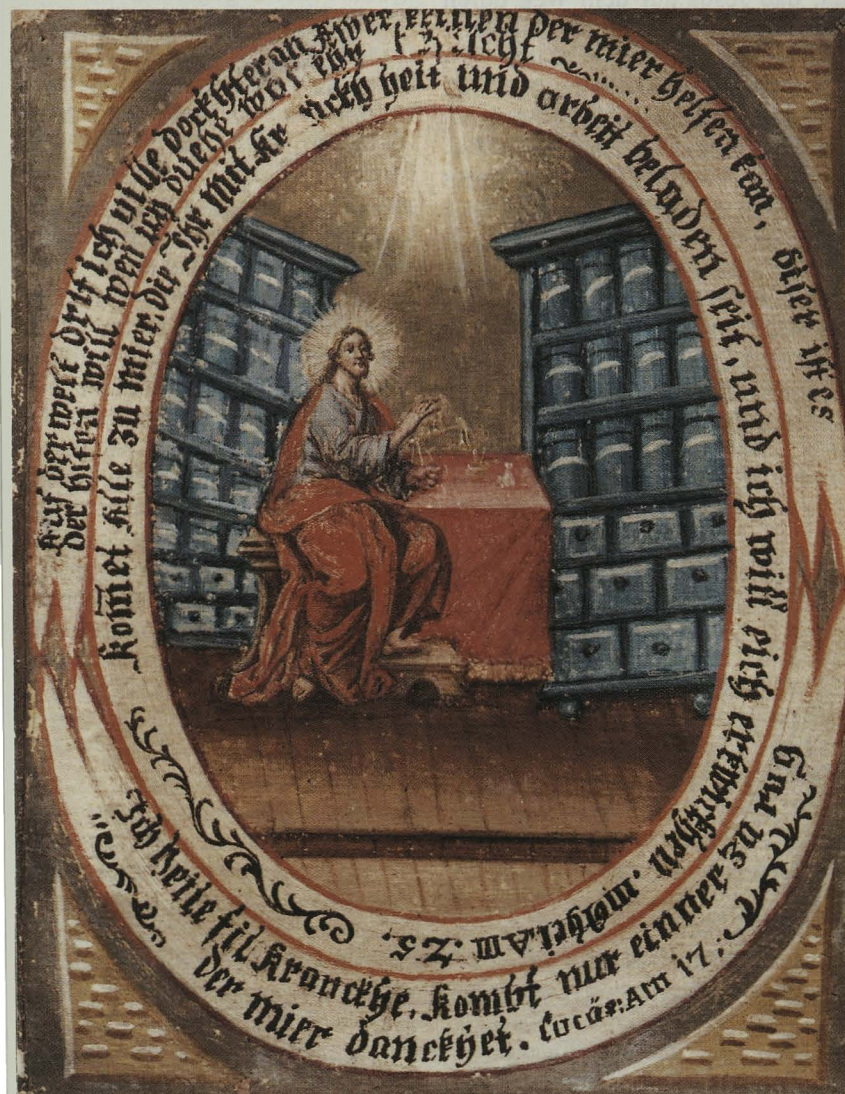 Auf der welt drift ich ville dockhter an Awer keinen der mier helfen kan, diser ist es
der hilfen will wen ich suche
Kom̃et Alle zu mier, die Ihr mit und arbeit beladen seit, und ich will eich erkwickhen. Am 25.
Ich heile fil Kranckhe, Kombt nur einner zu rug
der mier danckhet. Lucas: Am 17: